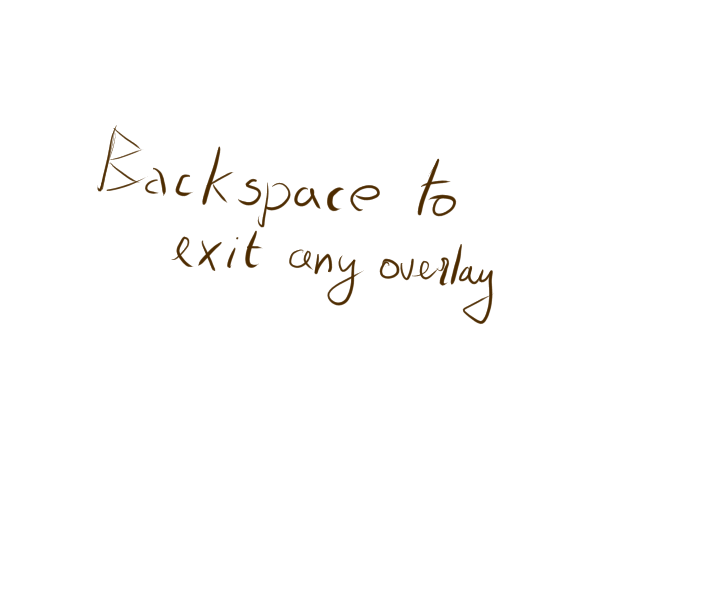 Backspace to
exit any overlay